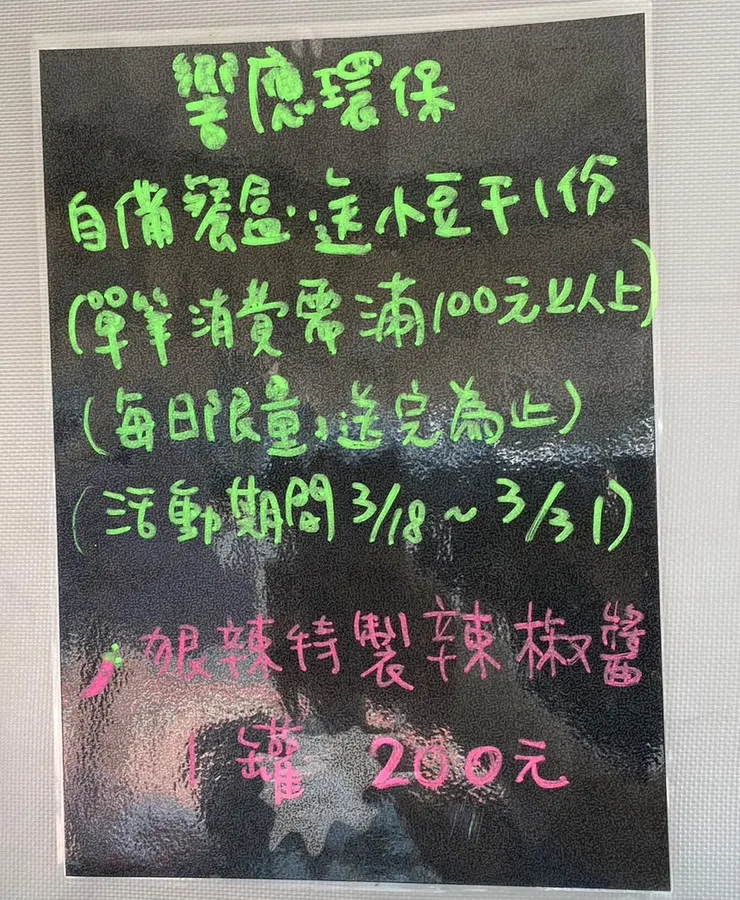 響應環保
自備餐盒..送小豆干1份
(單筆消費需滿100元以上)
(每日限量,送完為止)
(活動期間3/18~3/31)
狠辣特製辣椒醬
1罐 200元